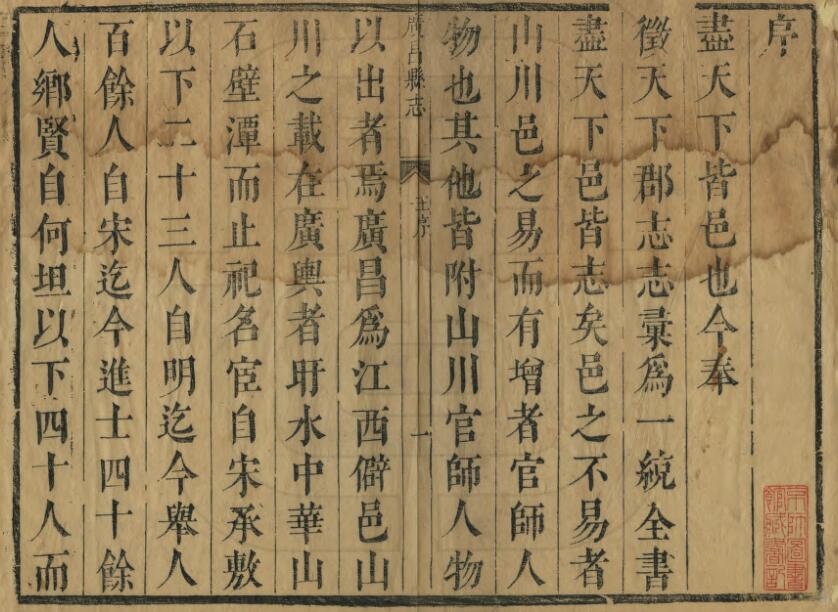 序
盡天下皆邑也今奉
徵天下郡志志彚爲一統全書
盡天下邑皆志矣邑之不易者
山川邑之易而有增者官師人
物也其他皆附山川官師人物
廣昌縣志
王序
一
以出者焉廣昌爲江西僻邑山
川之載在廣輿者盱水中華山
石壁潭而止祀名宦自宋承敷
以下二十三人自明迄今舉人
百餘人自宋迄今進士四十餘
人鄉賢自何坦以下四十人而